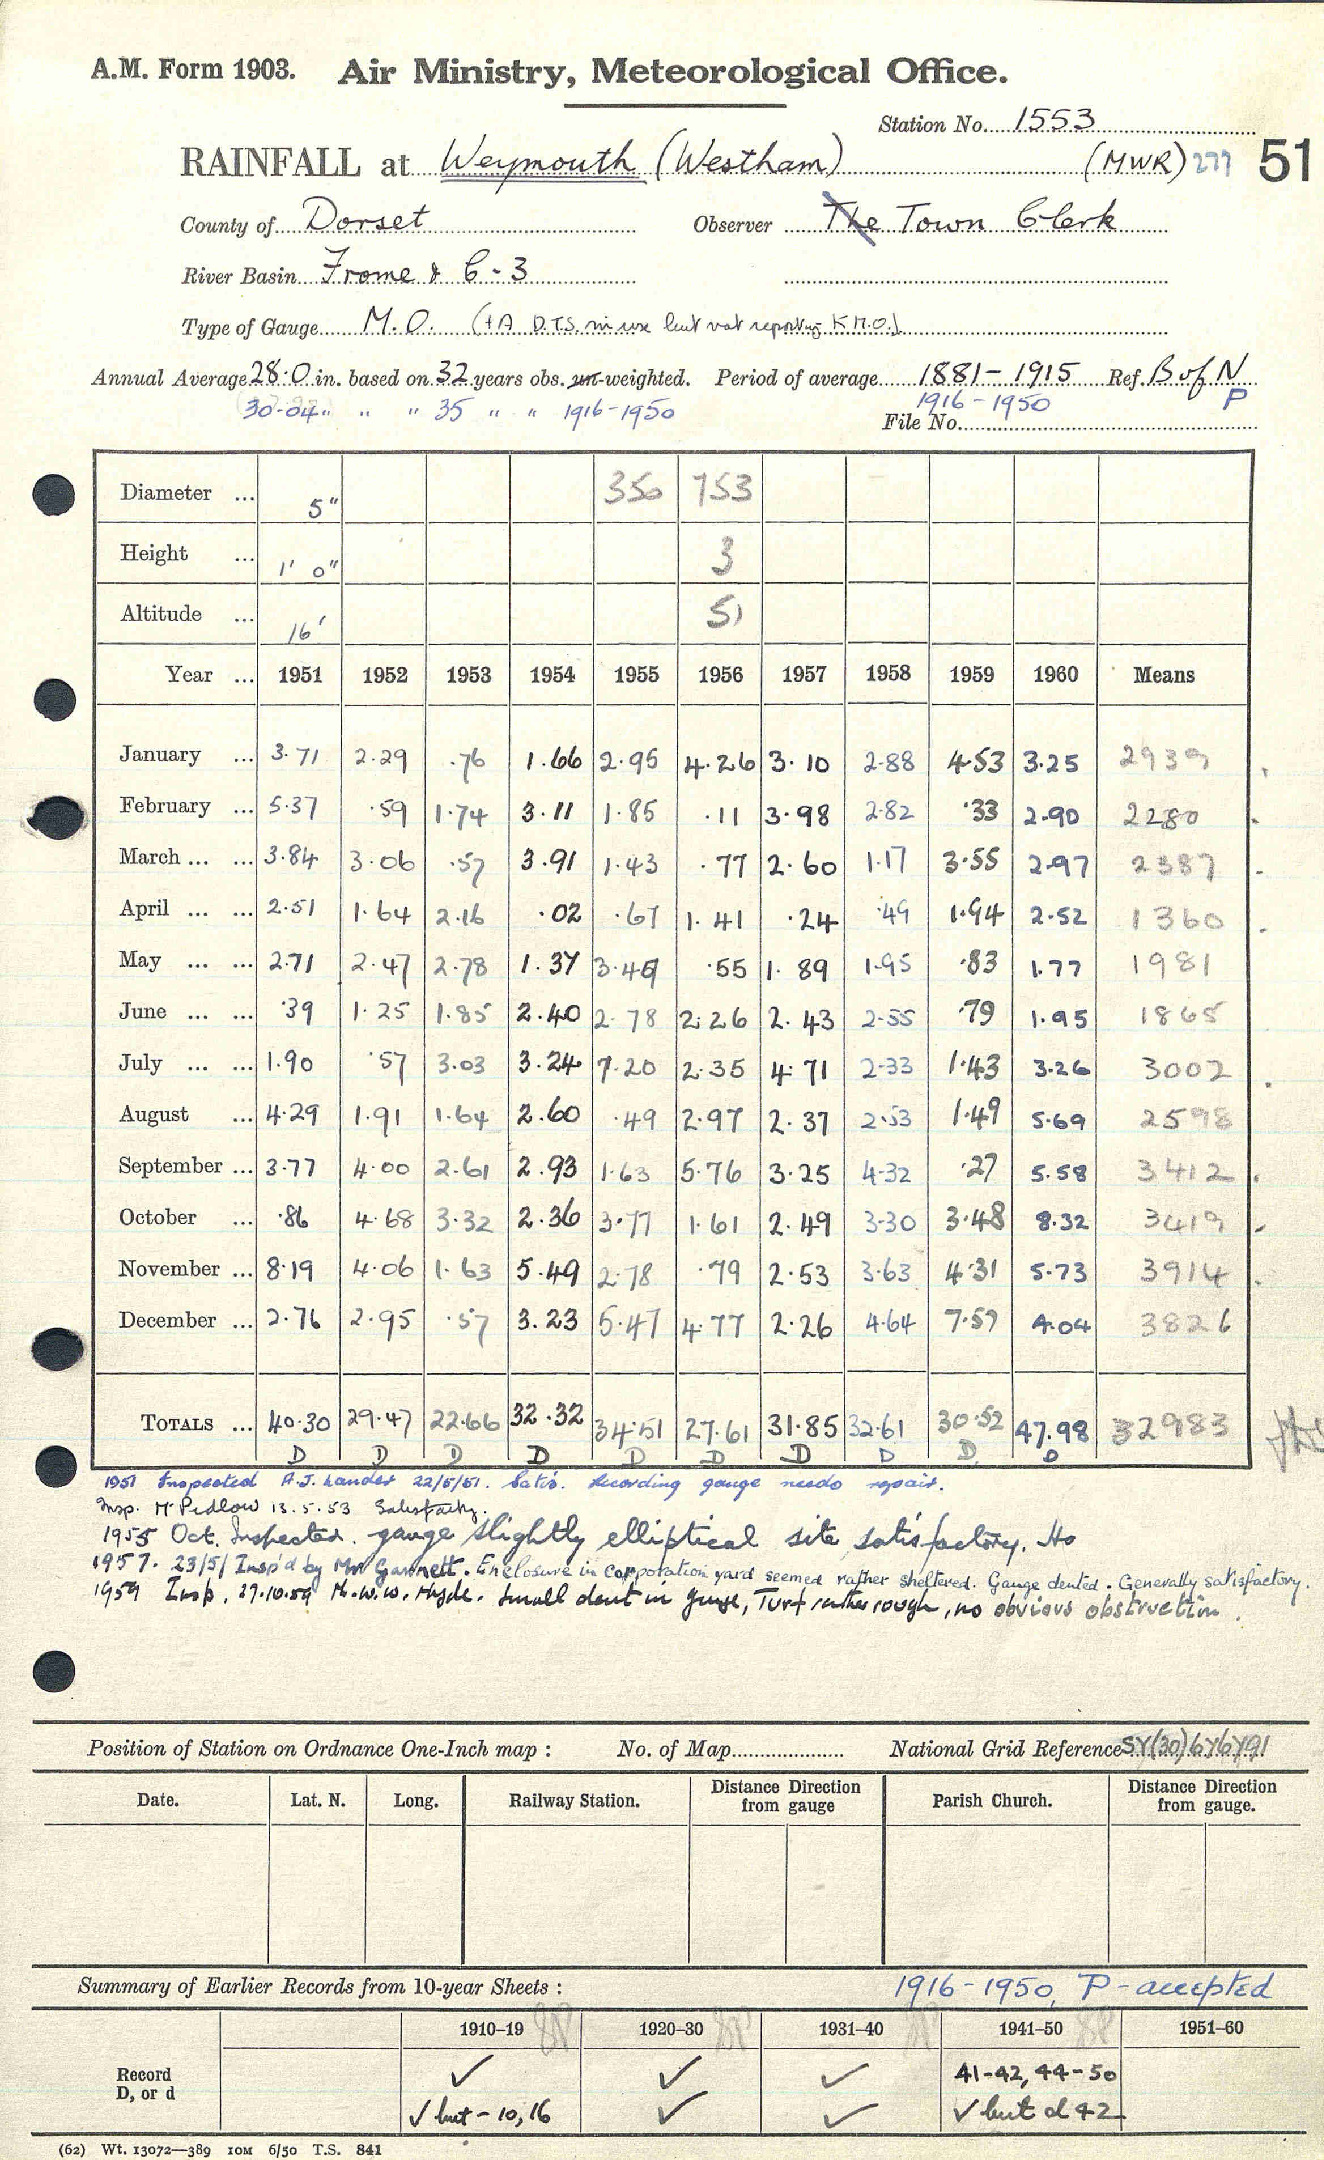 A.M. Form 1903. Air Ministry, Meteorological Office.
Station No. 1553
RAINFALL at Weymouth (Westham) (MWR) 277 51
County of Dorset Observer The Town Clerk
River Basin Frome & C-3
Type of Gauge M.O. (+A D.T.S. in use but not reporting K M.O.)
Annual Average 28.0 in. based on 32 years obs. un-weighted. Period of average 1881-1915 Ref. B of N
30.04 " " " 35 " " 1916-1950 1916-1950 P
File No.
Diameter ... 5" 350 753
Height ... 1' 0" 3
Altitude ... 16' 51
Year ... 1951 1952 1953 1954 1955 1956 1957 1958 1959 1960 Means
January ... 3.71 2.29 .76 1.66 2.95 4.26 3.10 2.88 4.53 3.25 2939
February ... 5.37 .59 1.74 3.11 1.85 .11 3.98 2.82 .33 2.90 2280
March ... ... 3.84 3.06 .57 3.91 1.43 .77 2.60 1.17 3.55 2.97 2387
April ... ... 2.51 1.64 2.16 .02 .67 1.41 .24 .49 1.94 2.52 1360
May ... ... 2.71 2.47 2.78 1.37 3.49 .55 1.89 1.95 .83 1.77 1981
June ... ... .39 1.25 1.85 2.40 2.78 2.26 2.43 2.55 .79 1.95 1865
July ... ... 1.90 .57 3.03 3.24 7.20 2.35 4.71 2.33 1.43 3.26 3002
August ... 4.29 1.91 1.64 2.60 .49 2.97 2.37 2.53 1.49 5.69 2598
September ... 3.77 4.00 2.61 2.93 1.63 5.76 3.25 4.32 .27 5.58 3412
October ... .86 4.68 3.32 2.36 3.77 1.61 2.49 3.30 3.48 8.32 3419
November ... 8.19 4.06 1.63 5.49 2.78 .79 2.53 3.63 4.31 5.73 3914
December ... 2.76 2.95 .57 3.23 5.47 4.77 2.26 4.64 7.57 4.04 3826
TOTALS ... 40.30 29.47 22.66 32.32 34.51 27.61 31.85 32.61 30.52 47.98 32983
D D D D D D D D D D
1951 Inspected A.J. Lander 22/5/51. Satis. Recording gauge needs repair.
Insp. Mr Pedlow 13.5.53 Satisfactory.
1955 Oct. Inspected. gauge slightly elliptical site satisfactory. Ho
1957. 23/5/ Insp'd by Mr Garnett. Enclosure in corporation yard seemed rather sheltered. Gauge dented. Generally satisfactory.
1959 Insp. 27.10.59 M.W.W. Hyde. Small dent in gauge, Turf rather rough, no obvious obstruction.
Position of Station on Ordnance One-Inch map : No. of Map National Grid Reference SY(30)676791
Date. Lat. N. Long. Railway Station. Distance Direction from gauge Parish Church. Distance Direction from gauge.
Summary of Earlier Records from 10-year Sheets : 1916-1950, P-accepted
1910-19 1920-30 1931-40 1941-50 1951-60
Record ✓ ✓ ✓ 41-42, 44-50
D, or d ✓ but -10,16 ✓ ✓ ✓ but d 42
(62) Wt. 13072—389 10M 6/50 T.S. 841